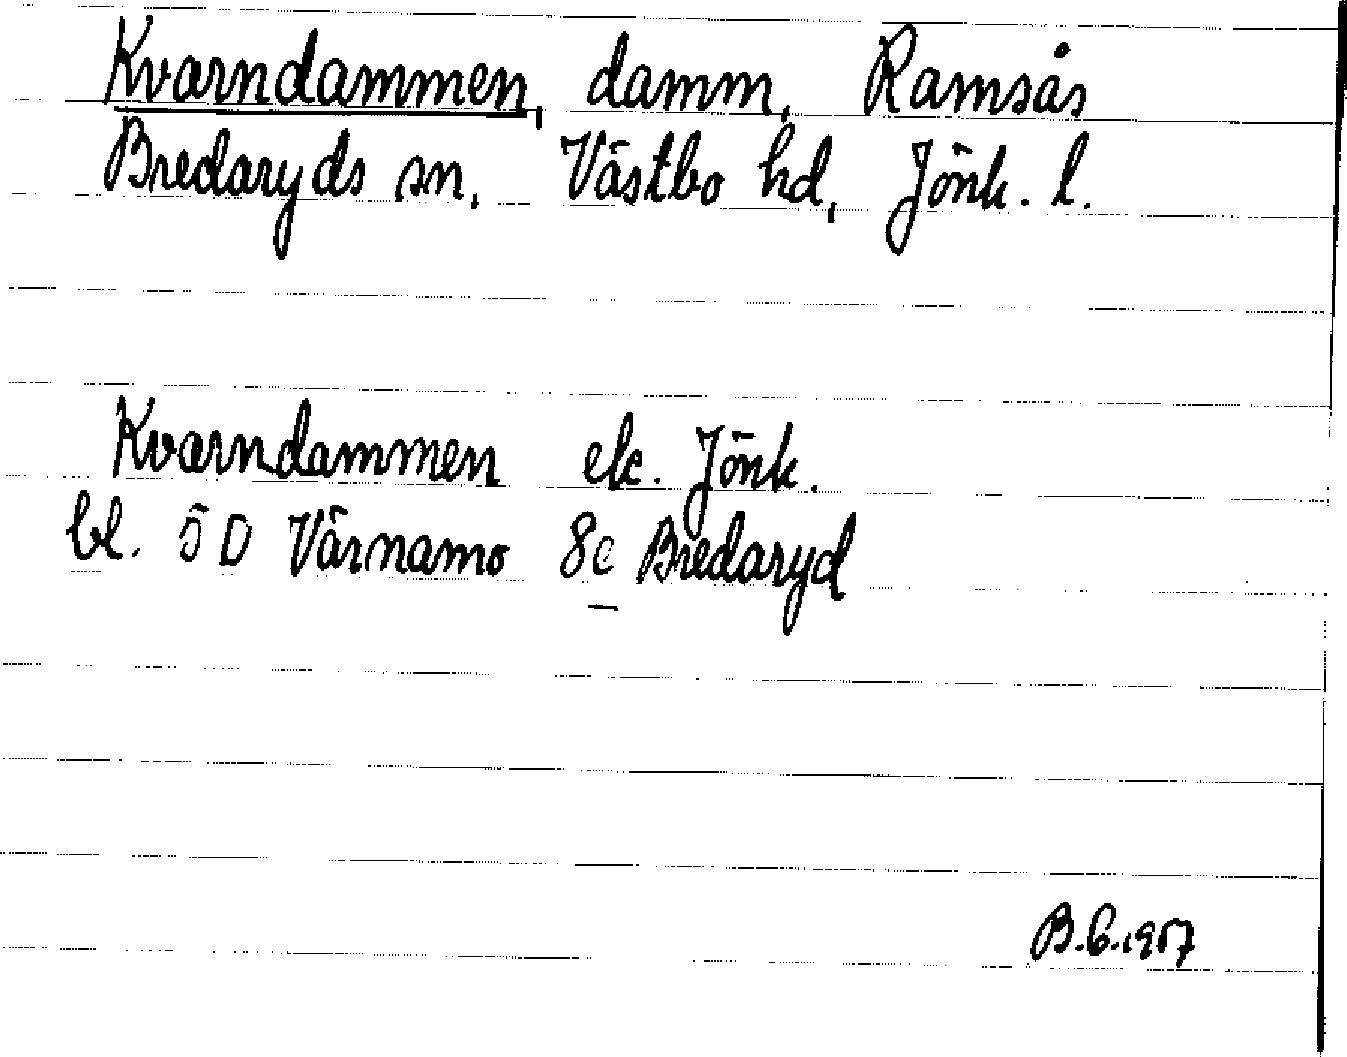 Kvarndammen, damm, Ramsås
Bredaryds sn, Västbo hd, Jönk. l.
Kvarndammen ek. Jönk.
bl. 5 D Värnamo 8c Bredaryd
B.E.1957